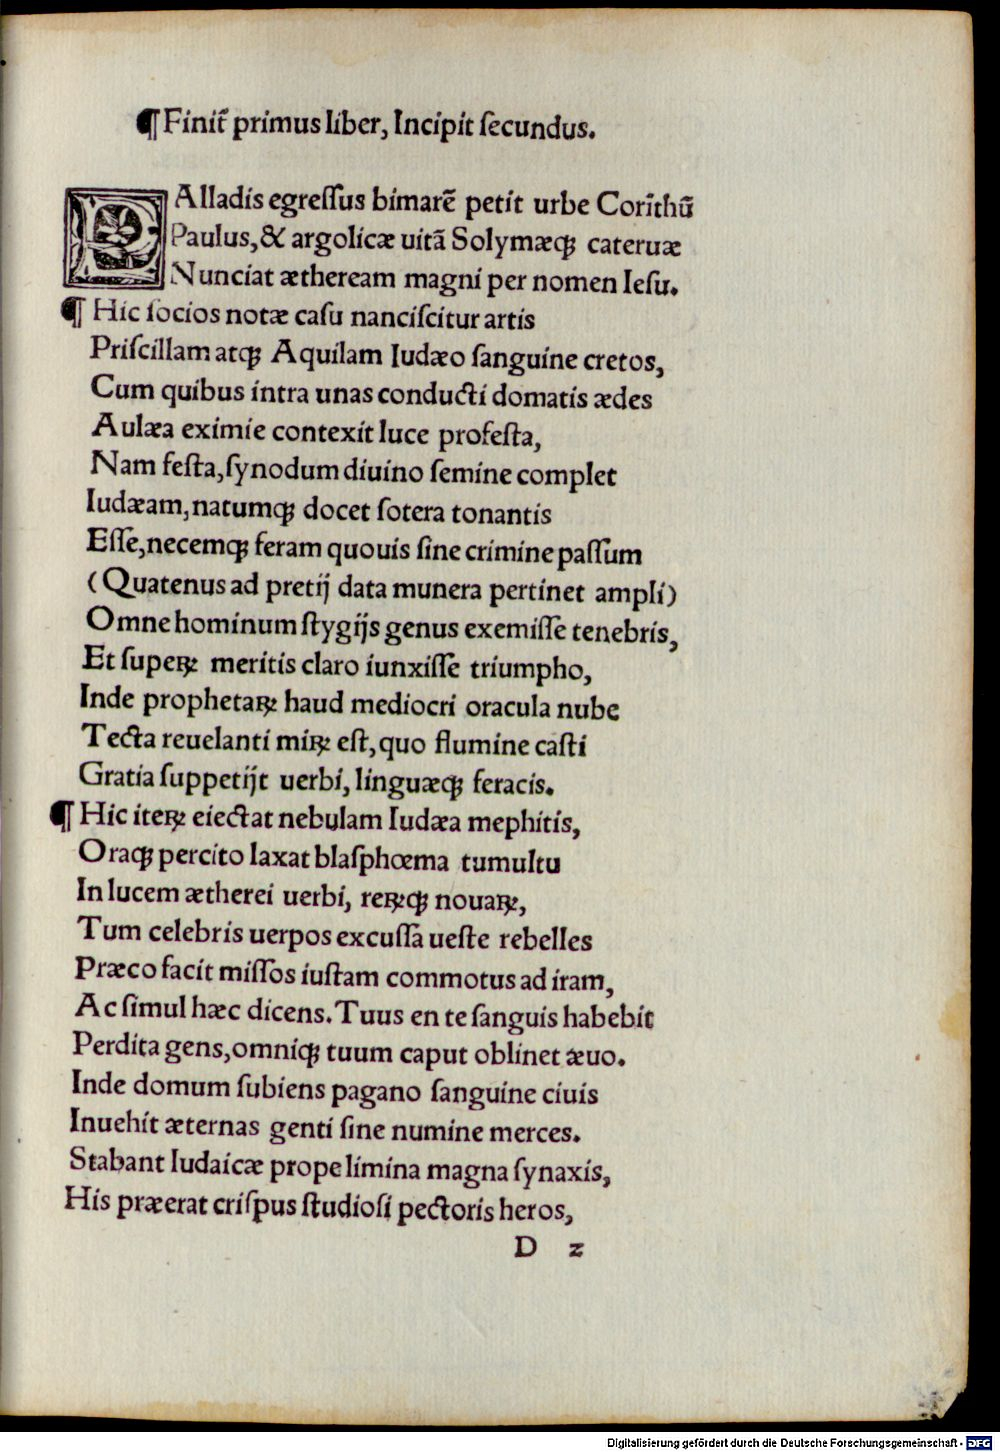 ¶Finit̃ primus liber, Incipit ſecundus.
PAlladis egreſſus bimarẽ petit urbe Corĩthũ
Paulus,& argolicæ uitã Solymæq; cateruæ
Nunciat ætheream magni per nomen Ieſu.
¶ Hic ſocios notæ caſu nanciſcitur artis
Priſcillam atq; Aquilam Iudæo ſanguine cretos,
Cum quibus intra unas conducti domatis ædes
Aulæa eximie contexit luce profeſta,
Nam feſta,ſynodum diuino ſemine complet
Iudæam,natumq; docet ſotera tonantis
Eſſe,necemq; feram quouis ſine crimine paſſum
(Quatenus ad pretij data munera pertinet ampli)
Omne hominum ſtygijs genus exemiſſe tenebris,
Et ſupeꝝ meritis claro iunxiſſe triumpho,
Inde prophetaꝝ haud mediocri oracula nube
Tecta reuelanti miꝝ eſt,quo flumine caſti
Gratia ſuppetijt uerbi, linguæq; feracis.
¶ Hic iteꝝ eiectat nebulam Iudæa mephitis,
Oraq; percito laxat blaſphœma tumultu
In lucem ætherei uerbi, reꝝq; nouaꝝ,
Tum celebris uerpos excuſſa ueſte rebelles
Præco facit miſſos iuſtam commotus ad iram,
Ac ſimul hæc dicens. Tuus en te ſanguis habebit
Perdita gens,omniq; tuum caput oblinet æuo.
Inde domum ſubiens pagano ſanguine ciuis
Inuehit æternas genti ſine numine merces.
Stabant Iudaicæ prope limina magna ſynaxis,
His præerat criſpus ſtudioſi pectoris heros,
D 2
Digitalisierung gefördert durch die Deutsche Forschungsgemeinschaft - DFG